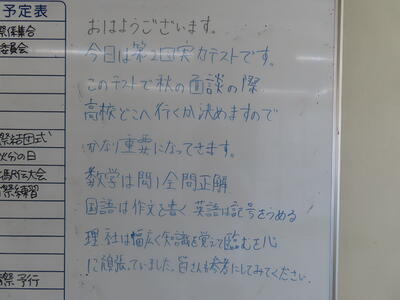 予定表
祭係集合
委員会
祭結団式
秋分の日
駅伝大会
祭練習
祭予行
おはようございます。
今日は第2回実力テストです。
このテストで秋の面談の際
高校どこへ行くか決めますので
かなり重要になってきます。
数学は問1全問正解
国語は作文を書く 英語は記号をうめる
理 社は幅広く知識を覚えて臨むを心
に頑張っていました。皆さんも参考にしてみてください。